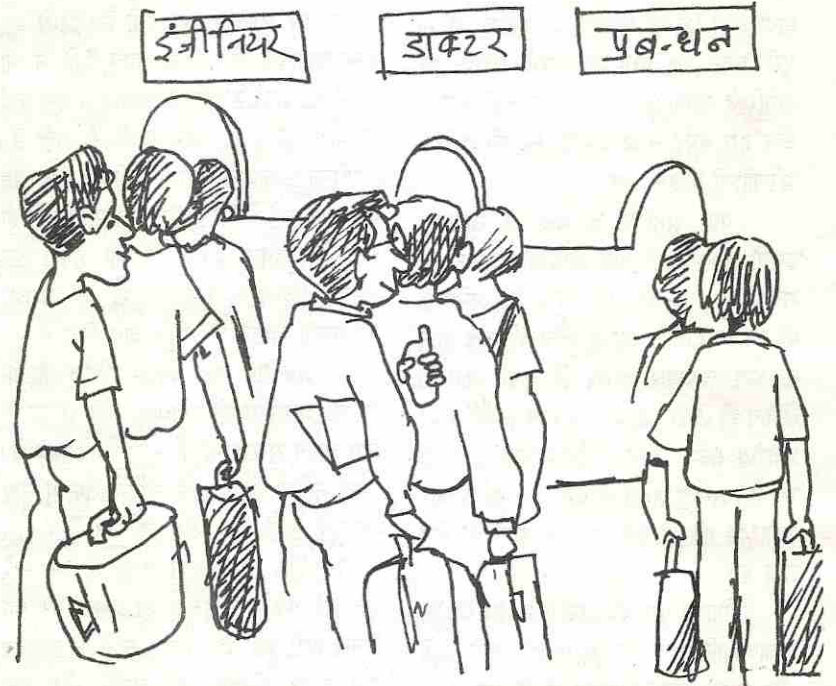 इंजीनियर
डाक्टर
प्रबन्धन